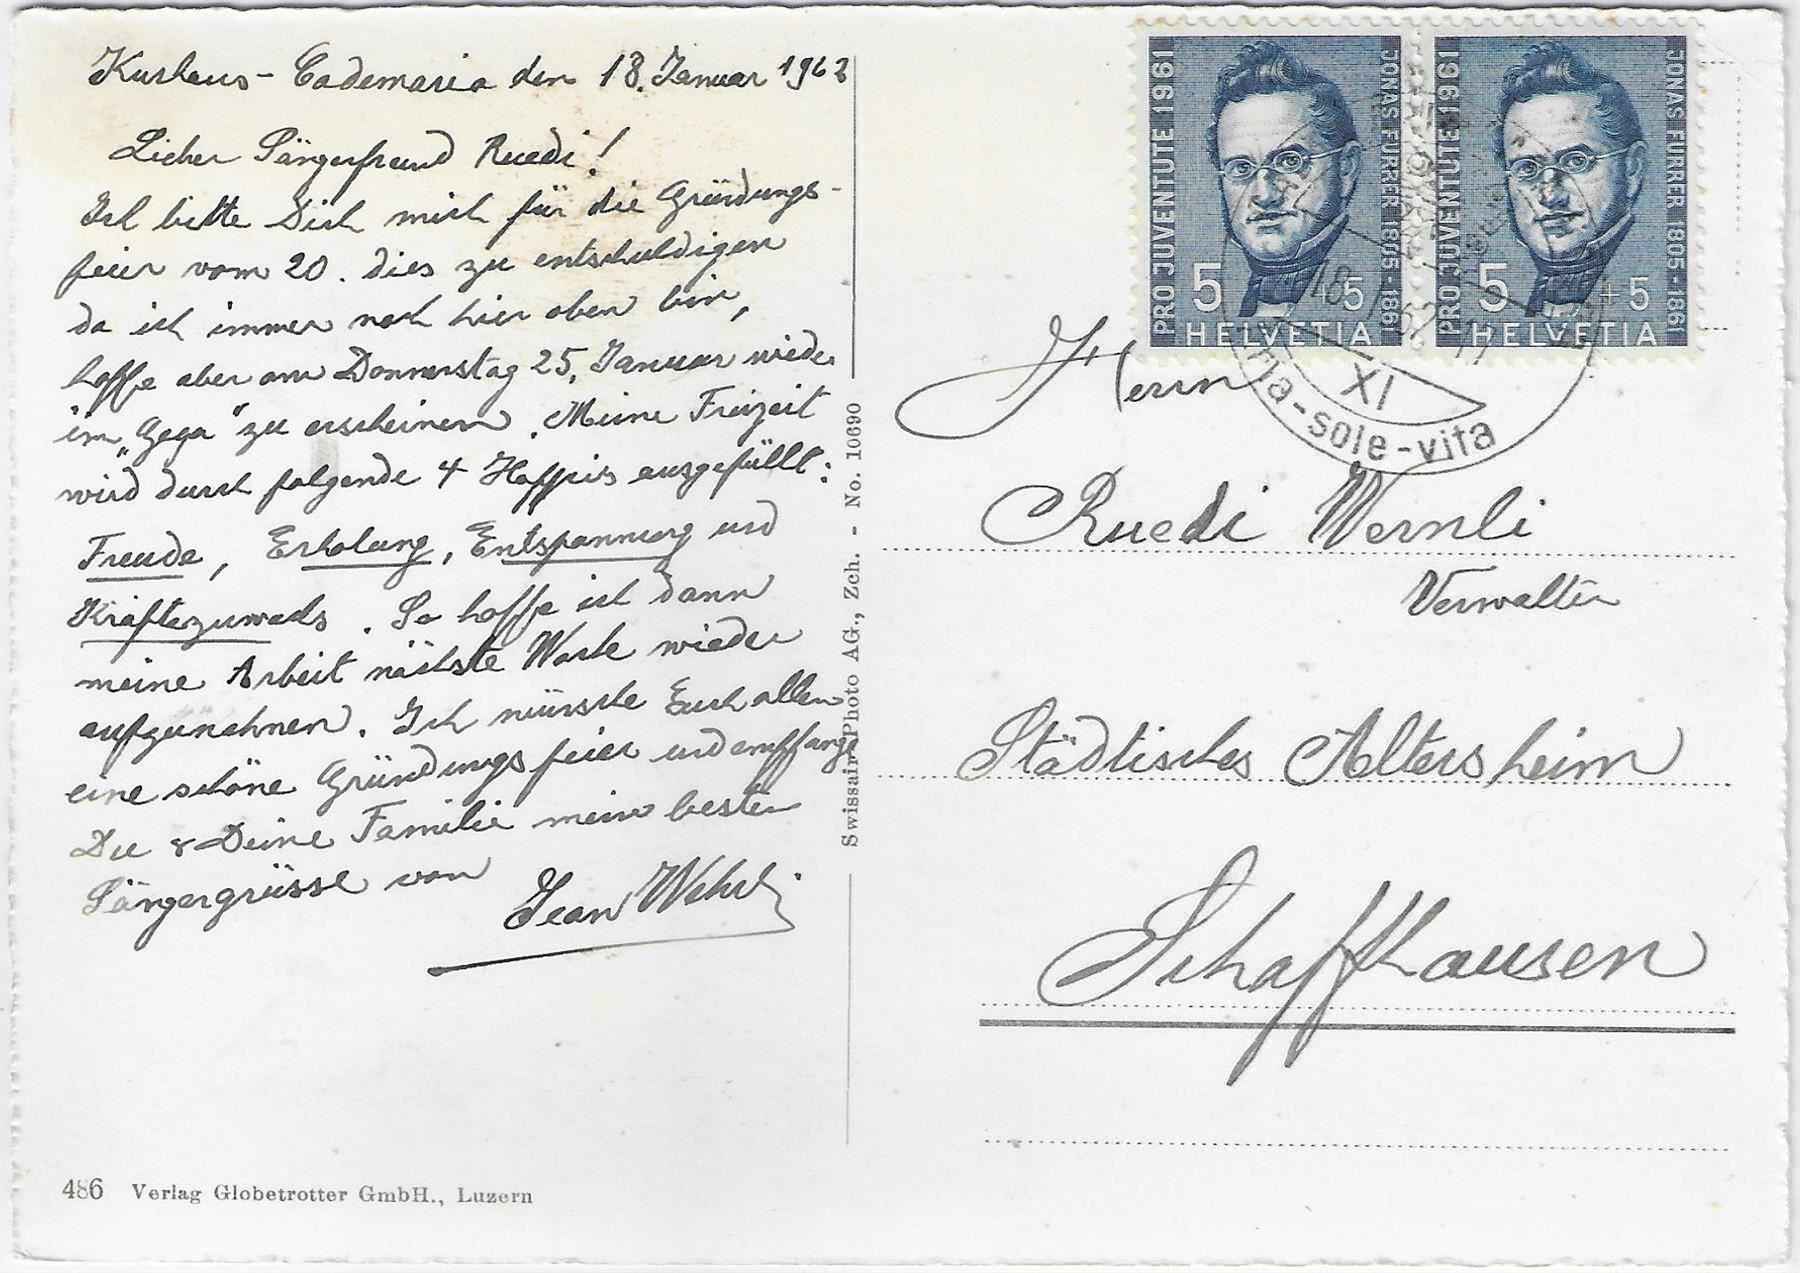 Kurhaus - Cademario den 18. Januar 1962
Lieber Sängerfreund Ruedi!
Ich bitte Dich mich für die Gründungs-
feier vom 20. dies zu entschuldigen
da ich immer noch hier oben bin,
hoffe aber am Donnerstag 25. Januar wieder
im „Gega" zu erscheinen. Meine Freizeit
wird durch folgende 4 ausgefüllt:
Freude, Erholung, Entspannung und
Kräftezuwachs. So hoffe ich dann
meine Arbeit nächste Woche wieder
aufzunehmen. Ich wünsche Euch allen
eine schöne Gründungsfeier und empfange
Du & Deine Familie meine besten
Sängergrüsse von
Jean Wehrli
486 Verlag Globetrotter GmbH., Luzern
Swissair-Photo AG., Zch. - No. 10690
PRO JUVENTUTE 1961
JONAS FURRER 1805-1861
5 + 5
HELVETIA
PRO JUVENTUTE 1961
JONAS FURRER 1805-1861
5 + 5
HELVETIA
18. I. 62
XI
aria-sole-vita
Herrn
Ruedi Wernli
Verwalter
Städtisches Altersheim
Schaffhausen